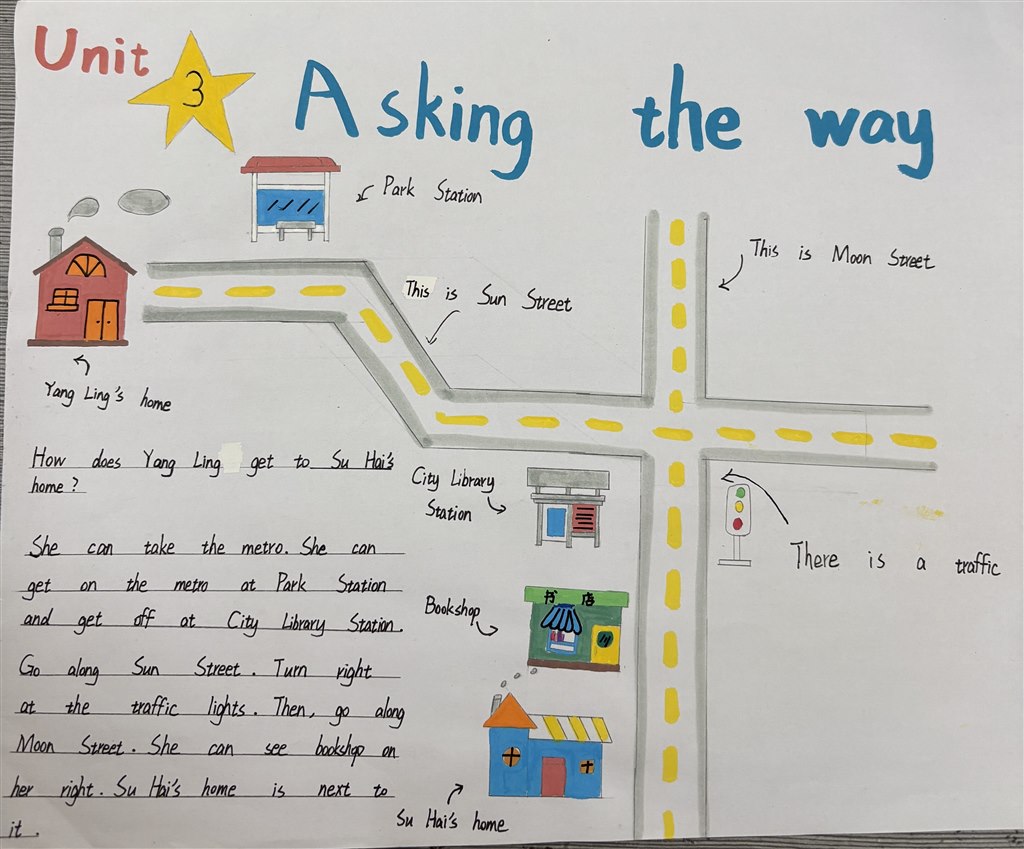 Unit 3
Asking the way
Park Station
This is Moon Street
This is Sun Street
Yang Ling's home
How does Yang Ling get to Su Hai's
home?
She can take the metro. She can
get on the metro at Park Station
and get off at City Library Station.
Go along Sun Street. Turn right
at the traffic lights. Then, go along
Moon Street. She can see bookshop on
her right. Su Hai's home is next to
it.
City Library
Station
There is a traffic
Bookshop
书店
Su Hai's home